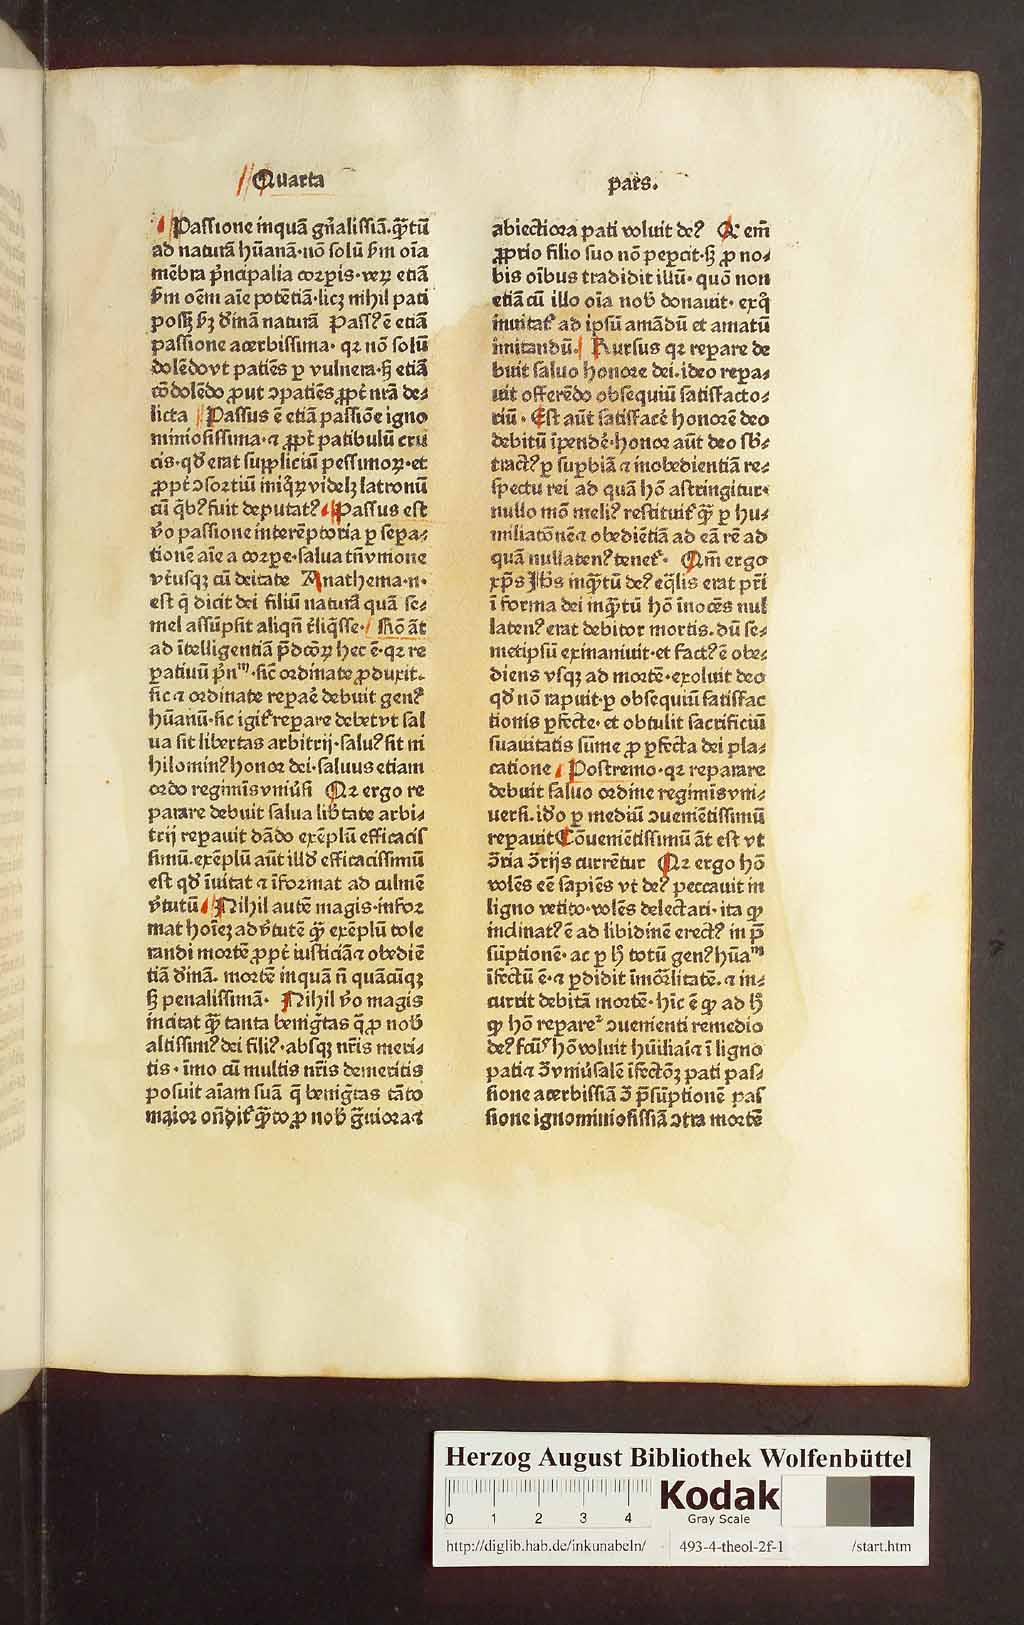 Quarta
pars.
Passione inquā gn̄alissiā. qꝫtū
ad naturā hūanā· nō solū ẜm oīa
mēbra pⁿcipalia corꝑis· veꝝ etiā
ẜm oēm aīe potētiā· licꝫ nihil pati
posꝫ ẜꝫ dīnā naturā Pass? ē etiā
passione acerbissima· qꝛ nō solū
dolēdo vt patiēs ꝑ vulnera· sꝫ etiā
cō dolēdo ꝓut ↄpatiēs ꝓpt̄ nr̄a de⸗
licta Passus ē etiā passiōe igno
miniosissima· ⁊ ꝓpt̄ patibulū cru
cis· qd̄ erat suppliciū pessimoꝝ· et
ꝓpt̄ ↄsortiū iniq̄ꝝ videlꝫ latronū
cū q̄b? fuit deputat? Passus est
v̄o passione interēptoria ꝑ sepa⸗
tionē aīe a corpe· salua tn̄ vnione
vt̄usqꝫ cū deitate Anathema· n·
est q̄ dicit dei filiū naturā quā se⸗
mel assūpsit aliqn̄ r̄liq̄sse· Rō āt
ad ītelligentiā p̄dcōꝝ hec ē· qꝛ re
ꝑatiuū pⁿn ᵐ· sic̄ ordinate ꝓduxit·
sic ⁊ ordinate repaē debuit gen?
hūanū· sic igit̄ reꝑare debet vt sal
ua sit libertas arbitrij· salu? sit ni
hilomin? honor dei· saluus etiam
ordo regimīs vniūsi Qꝛ ergo re
parare debuit salua lib̄tate arbi⸗
trij reꝑauit dādo exēplū efficacis
simū. exēplū aūt illd̄ efficacissimū
est qd̄ īuitat ⁊ īformat ad culmē
v̄tutū Nihil autē magis· infor
mat hoīeꝫ ad v̄tutē qꝫ exēplū tole
randi mortē ꝓpt̄ iusticiā ⁊ obediē
tiā dīnā. mortē inquā n̄ quācūqꝫ
sꝫ penalissimā· Nihil v̄o magis
incitat qꝫ tanta beniḡtas q̄ ꝓ nob̄
altissim? dei fili?· absqꝫ nr̄is meri⸗
tis· īmo cū multis nr̄is demeritis
posuit aīam suā q̄ beniḡtas tāto
maior on̄dit̄ qꝫto ꝓ nob̄ ḡuiora ⁊
abiectiora pati voluit de? Q̄ em̄
ꝓprio filio suo nō peꝑcit· sꝫ ꝓ no⸗
bis oībus tradidit illū· quō non
etiā cū illo oīa nob̄ donauit· exq̄
inuitat̄ ad ipsū amādū et amatū
imitandū· Rursus qꝛ reꝑare de
buit saluo honore dei· ideo reꝑa⸗
uit offerēdo obsequiū satisfacto⸗
riū· Est aūt satisfacē honorē deo
debitū īpendē· honor aūt deo sb̄⸗
tract? ꝑ suꝑbiā ⁊ inobedientiā re⸗
spectu rei ad quā hō astringitur·
nullo mō meli? restituit̄ qꝫ ꝑ hu⸗
miliatōnē ⁊ obediētiā ad eā rē ad
quā nullaten? tenet̄· Qm̄ ergo
xp̄s Ih̄s inqꝫtū de? eq̄lis erat pr̄i
ī forma dei inqꝫtū hō īnocēs nul
laten? erat debitor mortis. dū se⸗
metipsū exinaniuit· et fact? ē obe⸗
diens vsqꝫ ad mortē· exoluit deo
qd̄ nō rapuit· ꝑ obsequiū satisfac
tionis ꝑfecte· et obtulit sacrificiū
suauitatis sūme ꝓ ꝑfecta dei pla⸗
catione Postremo· qꝛ reparare
debuit saluo ordine regimīs vni⸗
uersi. id̄o ꝑ mediū ↄuenientissimū
repauit Cōuenientissimū āt est vt
ↄ̄ria ↄ̄rijs currētur Qꝛ ergo hō
volēs eē sapiēs vt de? peccauit in
ligno vetito· volēs delectari· ita qꝙ
inclinat? ē ad libidinē erect? in p̄
sūptionē· ac ꝑ hꝫ totū gen? hūaᵐ
īfectū ē· ⁊ ꝑdidit īmōrlitatē. ⁊ in⸗
currit debitā mortē· hīc ē ꝙ ad hꝫ
ꝙ hō repareꝛ ↄuenienti remedio
de? fcūs hō voluit hūiliari ⁊ ī ligno
pati ⁊ ↄ̄ vniūsalē īfectōꝫ pati pas⸗
sione acerbissiā ↄ̄ p̄sūptionē pas
sione ignominiosissiā ↄtra mortē
Herzog August Bibliothek Wolfenbüttel
0 1 2 3 4
Kodak
Gray Scale
http://diglib.hab.de/inkunabeln/ 493-4-theol-2f-1 /start.htm